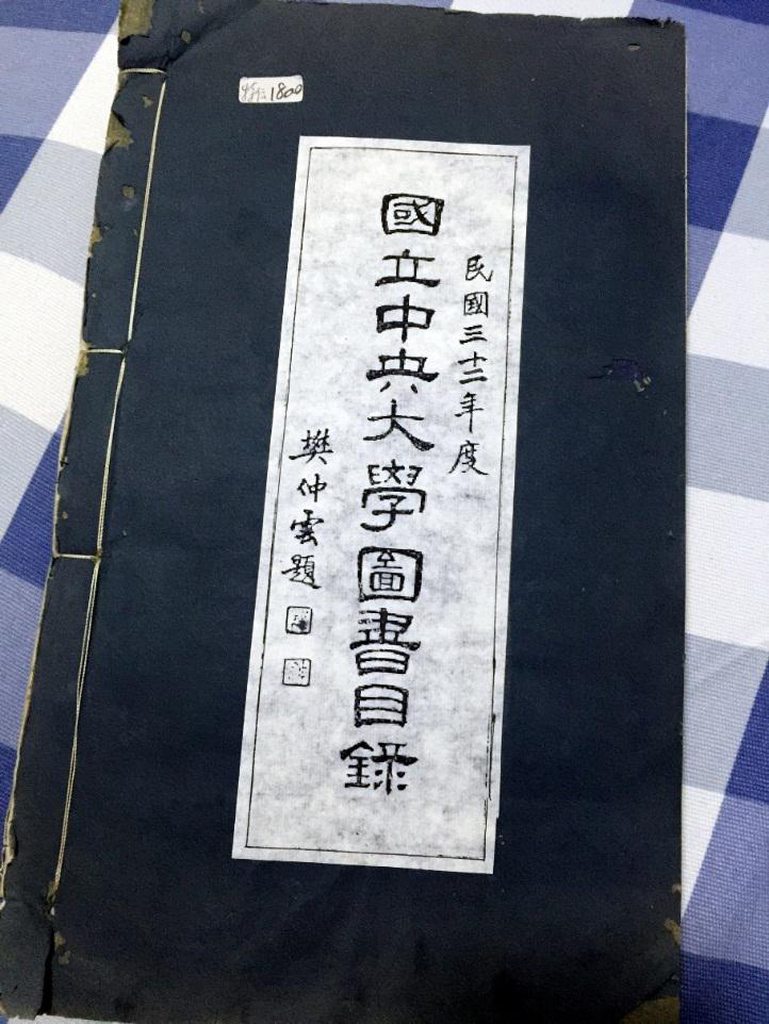 民國三十二年度
國立中央大學圖書目錄
樊仲雲題
1800